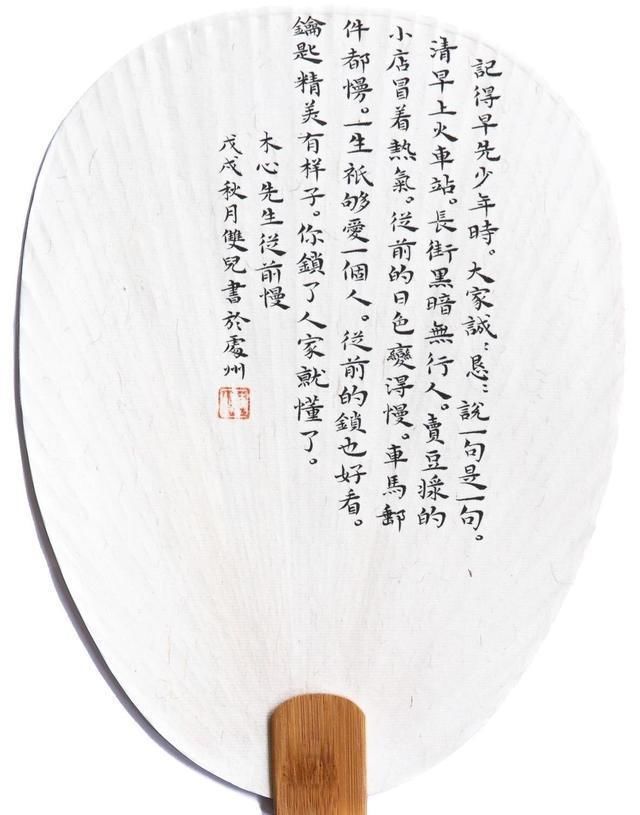 記得早先少年時。大家誠：恳：說一句是一句。
清早上火車站。長街黑暗無行人。賣豆漿的
小店冒着熱氣。從前的日色變得慢。車馬郵
件都慢。一生衹够愛一個人。從前的鎖也好看。
鑰匙精美有样子。你鎖了人家就懂了。
木心先生從前慢
戊戌秋月雙兒書於處州